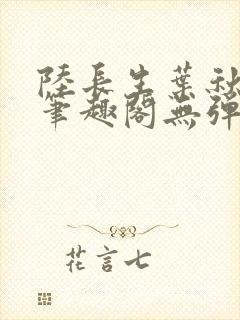 陸長生葉秋
筆趣閣無彈
花言七